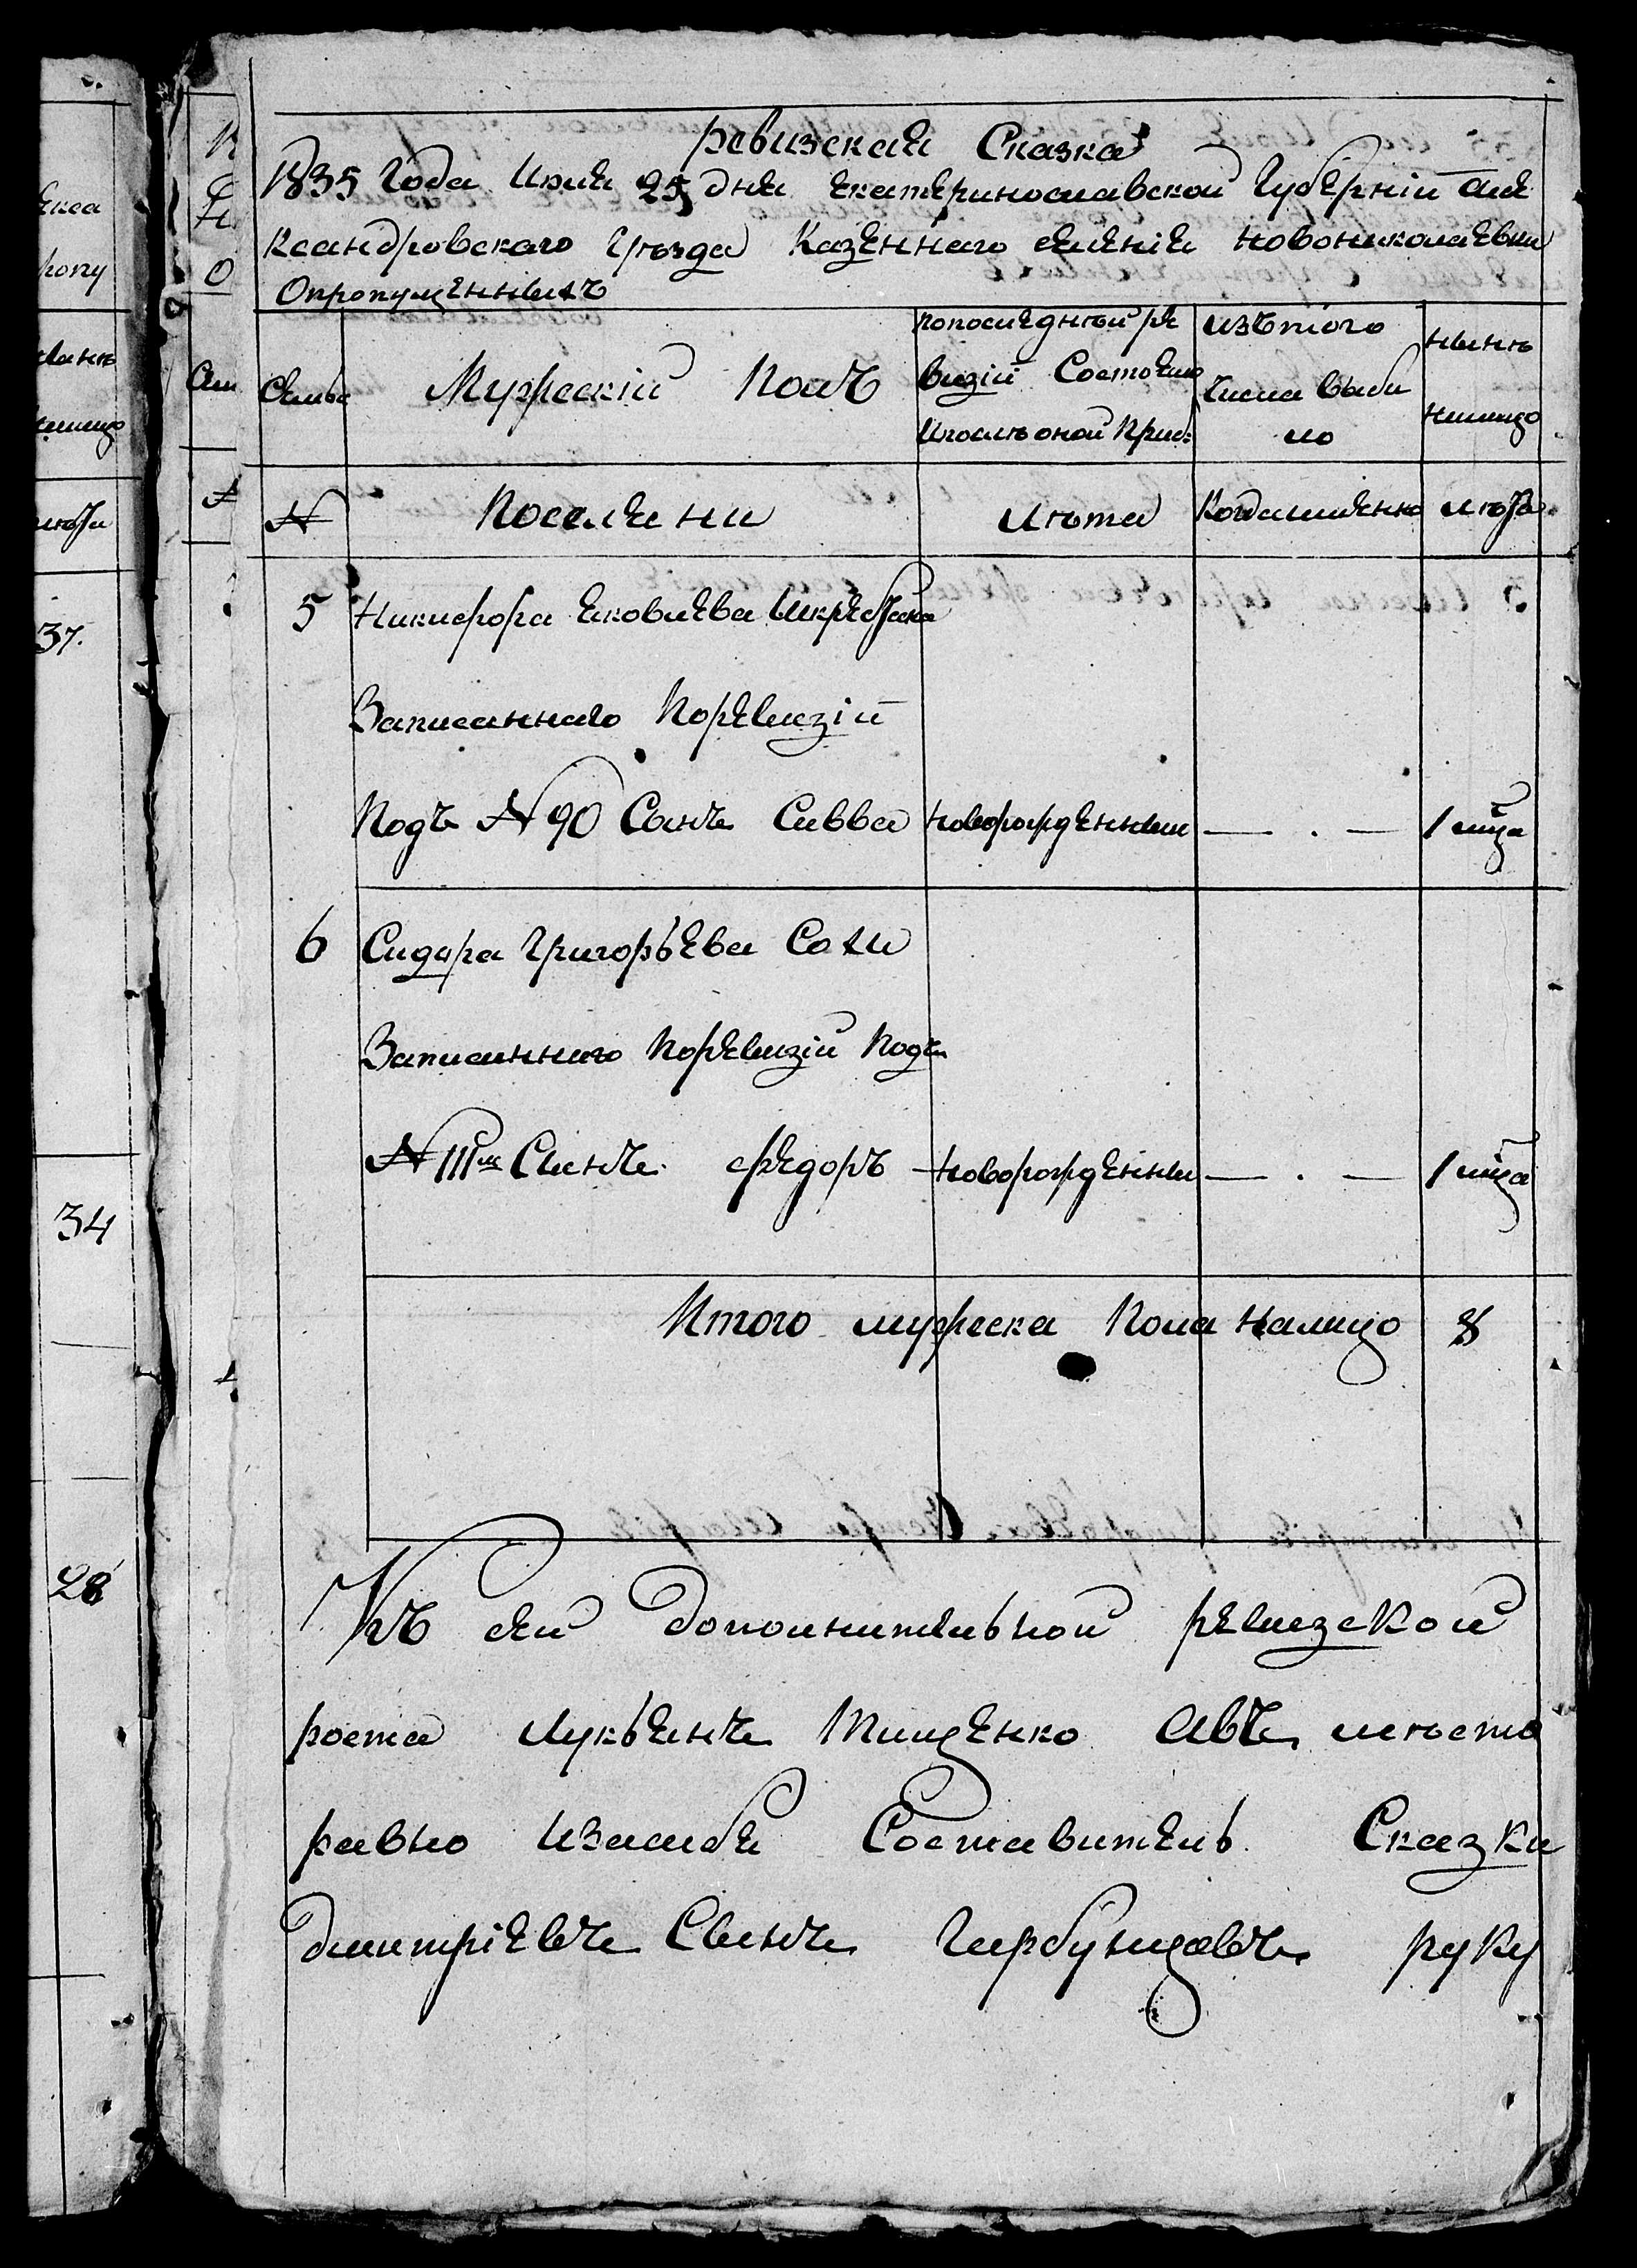 ревизская Сказка
1835 года Июня 25 дня екатеринославской губѣрніи але
ксандровского уѣзда Казеннаго селенія новониколаевки
О пропущенныхъ
Семьи
Мужескій Полъ
по последнѣй ре
визіи Состояло
И после оной Приб:
изъ того
числа выбы
ло
нынѣ
налицо
№
Поселяни
Лѣта
Когда именно
лѣта
5 Никифора яковлева
Записаннаго По ревизіи
Подъ № 90 Сынъ Савва новорожденныи — . — 1 мца
6 Сидора григорьева Сохи
Записаннаго По ревизіи Подъ
№ 111м Сынъ федоръ новорожденны — . — 1 мца
Итого мужеска Пола налицо 8
Къ сей дополнительной ревизской
роста лукьянъ Тищенко Авъ мѣсто
равно И засебя Составитель Сказки
дмитріевъ Сынъ Гарбунцовъ руку
37.
34
28